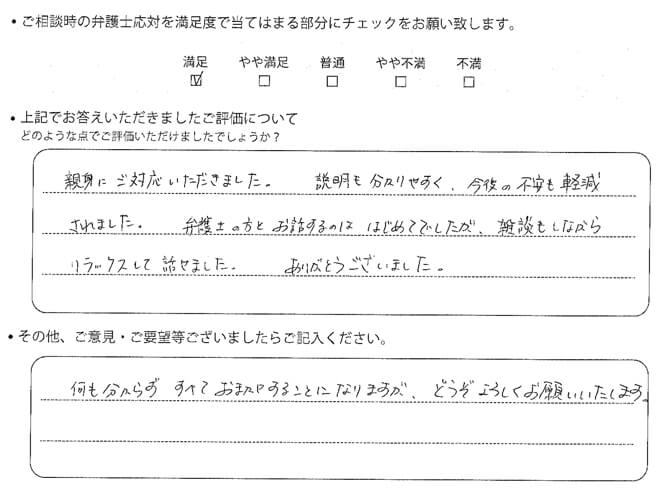 • ご相談時の弁護士応対を満足度で当てはまる部分にチェックをお願い致します。
満足 やや満足 普通 やや不満 不満
☑ □ □ □ □
• 上記でお答えいただきましたご評価について
どのような点でご評価いただけましたでしょうか？
親身にご対応いただきました。 説明も分かりやすく、今後の不安も軽減
されました。 弁護士の方とお話するのははじめてでしたが、雑談もしながら
リラックスして話せました。 ありがとうございました。
• その他、ご意見・ご要望等ございましたらご記入ください。
何も分からず すべておまかせすることになりますが、どうぞよろしくお願いいたします。